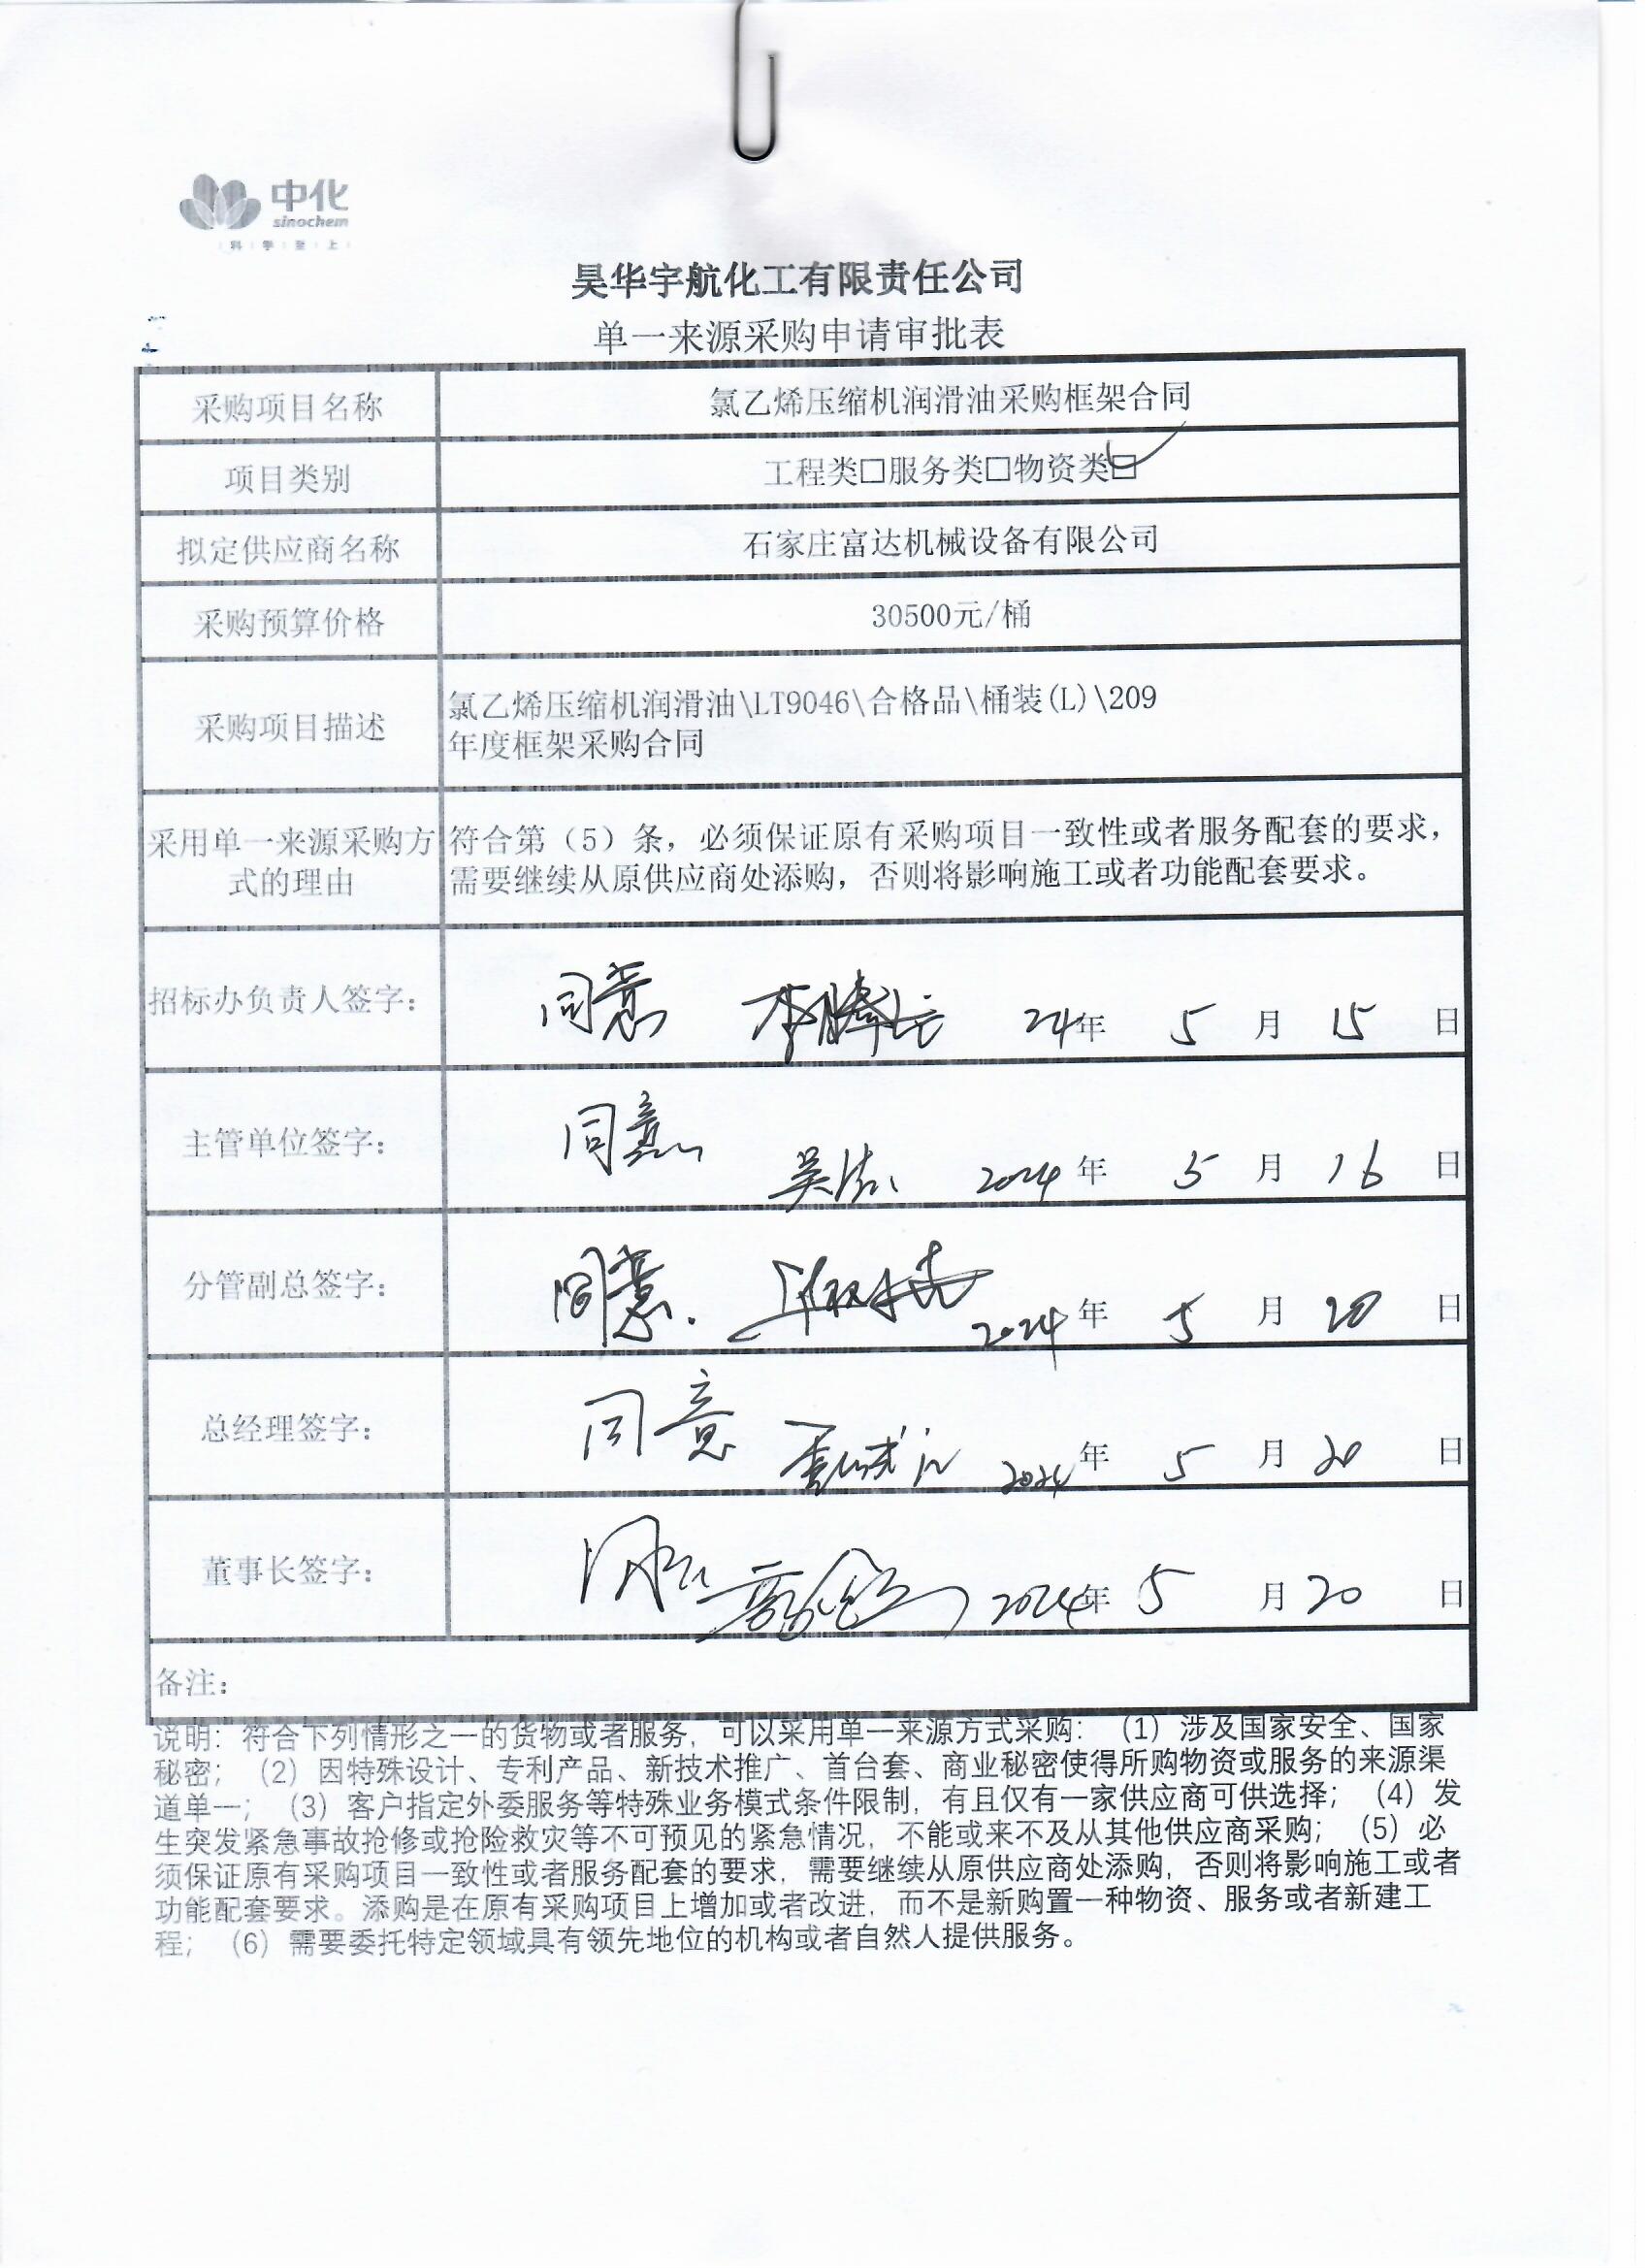 中化
sinochem
科 学 至 上
昊华宇航化工有限责任公司
单一来源采购申请审批表
采购项目名称 氯乙烯压缩机润滑油采购框架合同
项目类别 工程类□服务类□物资类□✓
拟定供应商名称 石家庄富达机械设备有限公司
采购预算价格 30500元/桶
采购项目描述 氯乙烯压缩机润滑油\LT9046\合格品\桶装(L)\209
年度框架采购合同
采用单一来源采购方式的理由 符合第（5）条，必须保证原有采购项目一致性或者服务配套的要求，
需要继续从原供应商处添购，否则将影响施工或者功能配套要求。
招标办负责人签字： 同意 24年 5 月 15 日
主管单位签字： 同意 2024 年 5 月 16 日
分管副总签字： 同意. 2024 年 5 月 20 日
总经理签字： 同意 2024 年 5 月 20 日
董事长签字： 同意 2024年 5 月 20 日
备注：
说明：符合下列情形之一的货物或者服务，可以采用单一来源方式采购：（1）涉及国家安全、国家
秘密；（2）因特殊设计、专利产品、新技术推广、首台套、商业秘密使得所购物资或服务的来源渠
道单一；（3）客户指定外委服务等特殊业务模式条件限制，有且仅有一家供应商可供选择；（4）发
生突发紧急事故抢修或抢险救灾等不可预见的紧急情况，不能或来不及从其他供应商采购；（5）必
须保证原有采购项目一致性或者服务配套的要求，需要继续从原供应商处添购，否则将影响施工或者
功能配套要求。添购是在原有采购项目上增加或者改进，而不是新购置一种物资、服务或者新建工
程；（6）需要委托特定领域具有领先地位的机构或者自然人提供服务。